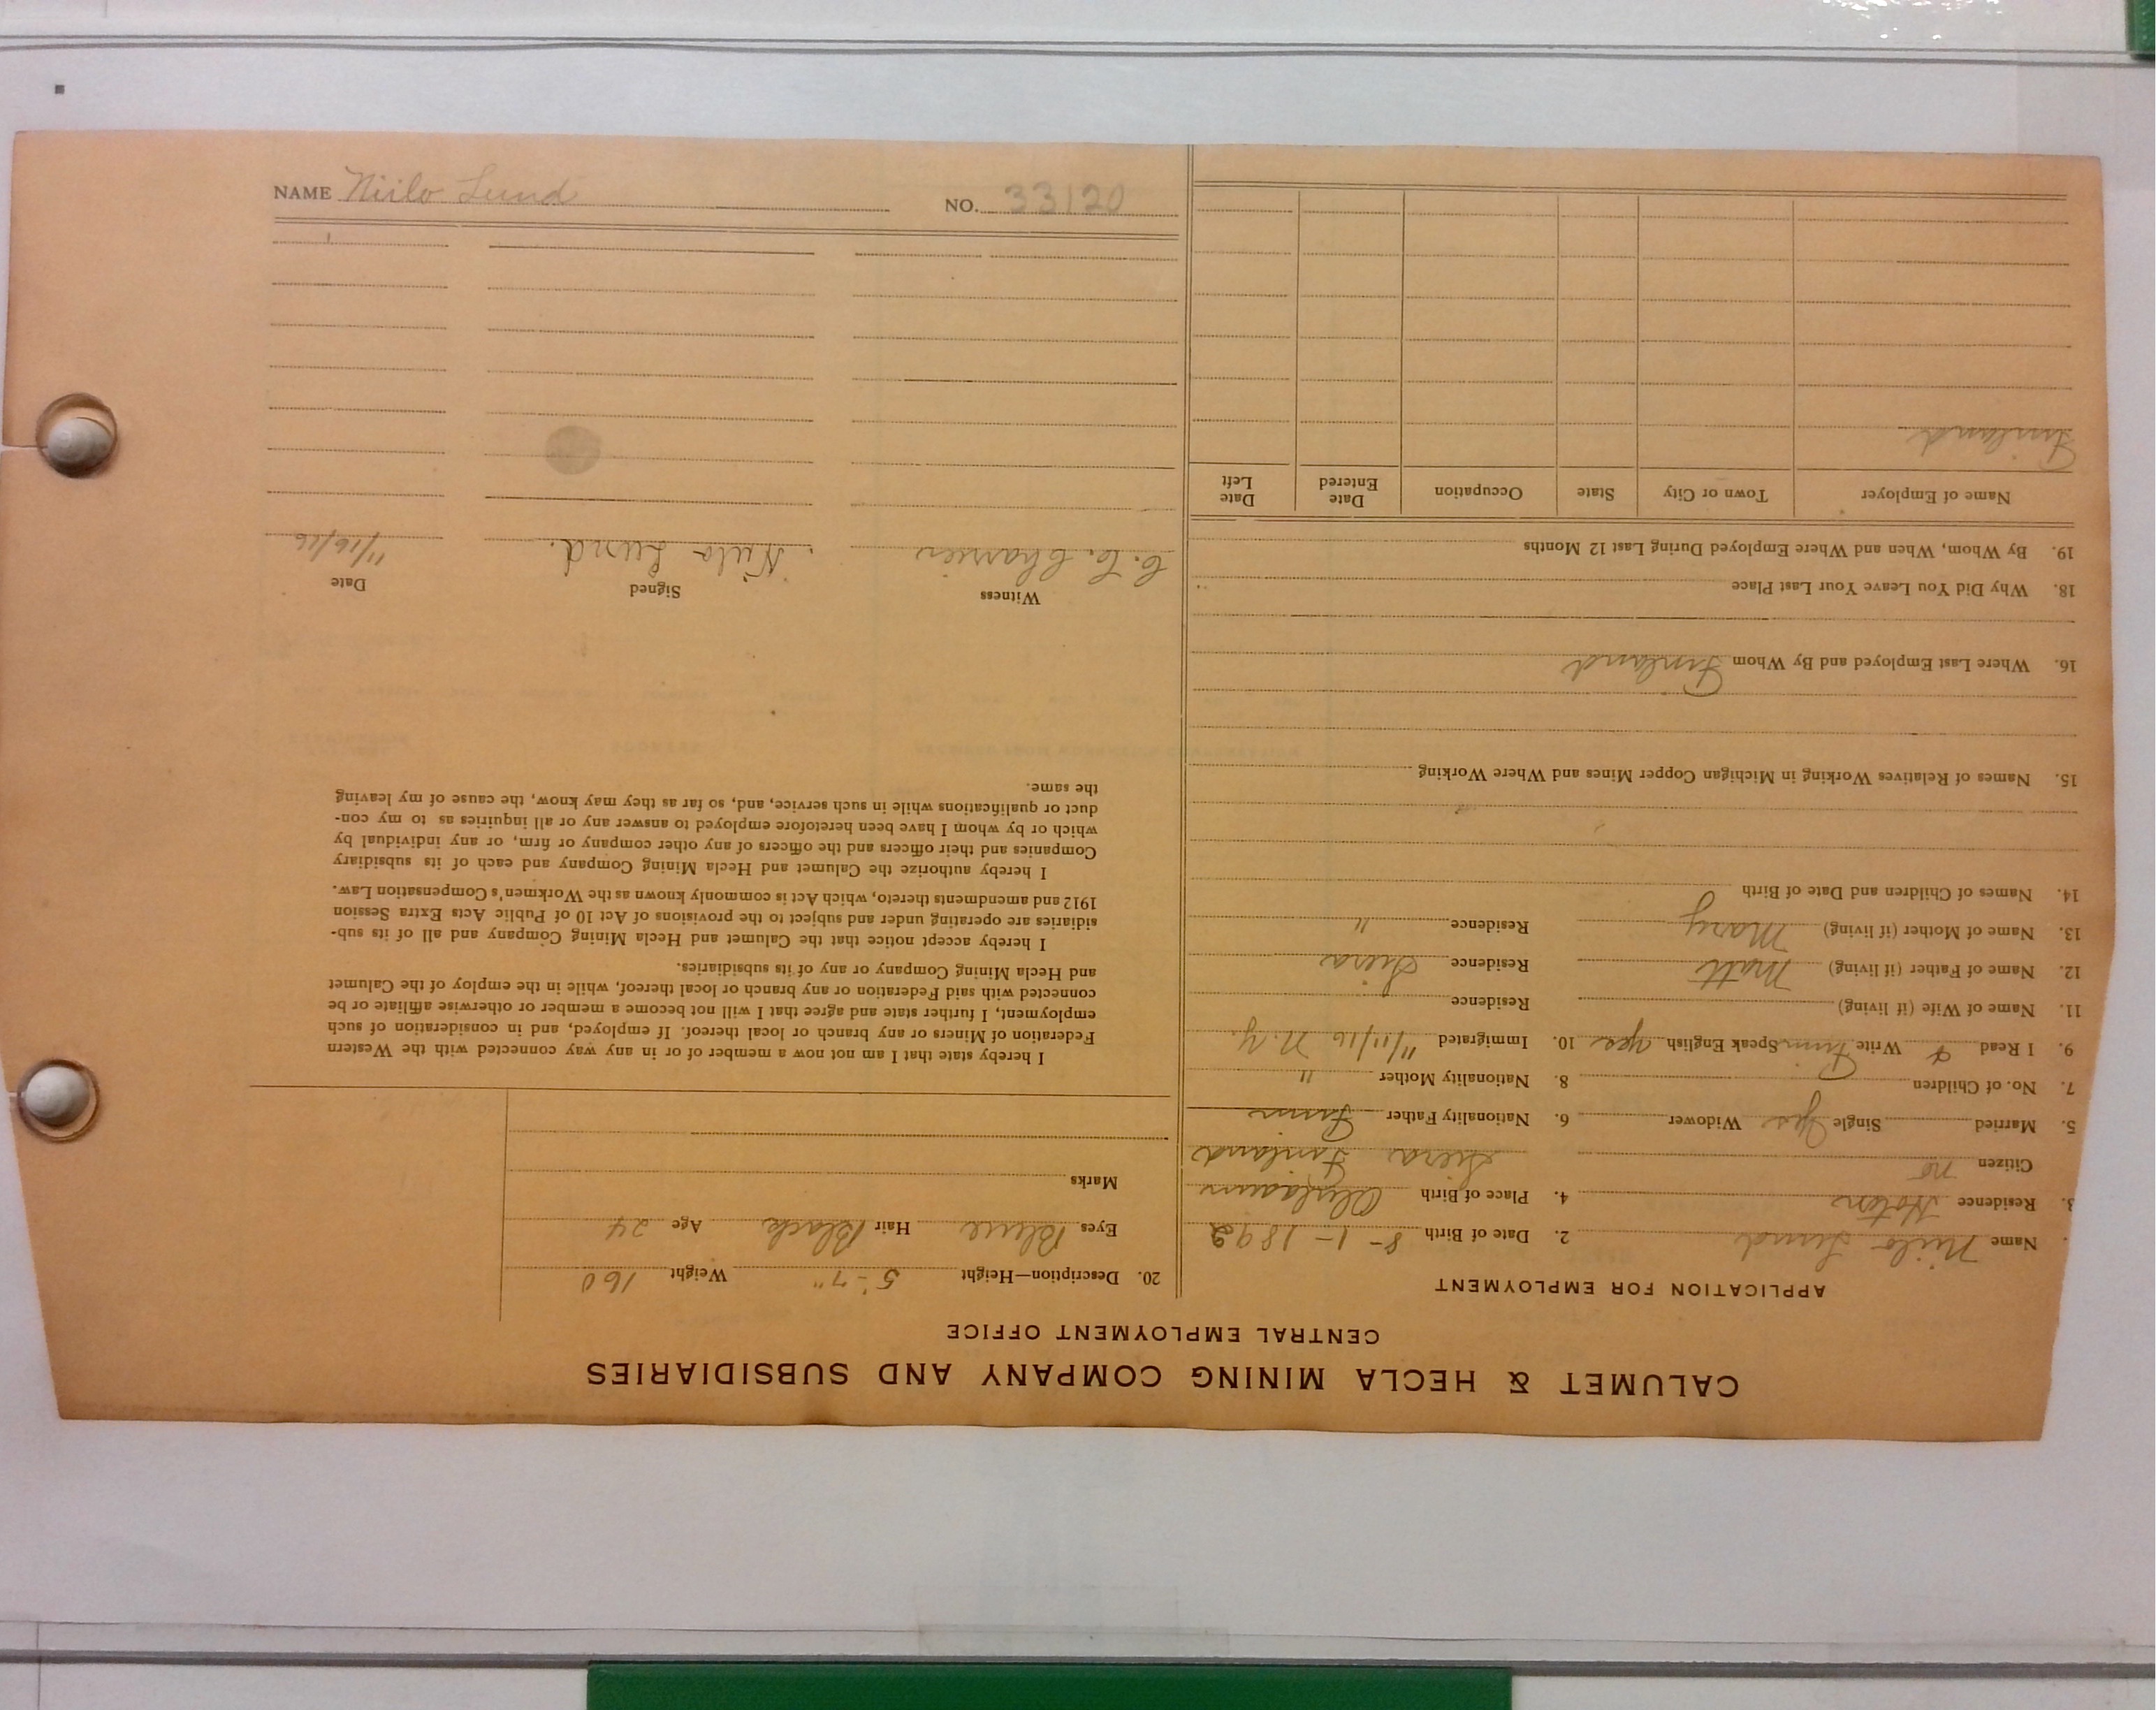 NAME Niilo Lund NO. 33120
CALUMET & HECLA MINING COMPANY AND SUBSIDIARIES
CENTRAL EMPLOYMENT OFFICE
APPLICATION FOR EMPLOYMENT
Name Niilo Lund
2. Date of Birth 8-1-1892
3. Residence Hoton
4. Place of Birth
Citizen no
Finland
5. Married Single Yes Widower
6. Nationality Father Finn
7. No. of Children
8. Nationality Mother "
9. I Read & Write Finn Speak English yes
10. Immigrated 11/11/16 N.Y.
11. Name of Wife (if living) Residence
12. Name of Father (if living) Matt Residence
13. Name of Mother (if living) Mary Residence "
14. Names of Children and Date of Birth
15. Names of Relatives Working in Michigan Copper Mines and Where Working
16. Where Last Employed and By Whom Finland
18. Why Did You Leave Your Last Place
19. By Whom, When and Where Employed During Last 12 Months
Name of Employer Town or City State Occupation Date Entered Date Left
Finland
20. Description—Height 5'-7" Weight 160
Eyes Blue Hair Black Age 24
Marks
I hereby state that I am not now a member of or in any way connected with the Western
Federation of Miners or any branch or local thereof. If employed, and in consideration of such
employment, I further state and agree that I will not become a member or otherwise affiliate or be
connected with said Federation or any branch or local thereof, while in the employ of the Calumet
and Hecla Mining Company or any of its subsidiaries.
I hereby accept notice that the Calumet and Hecla Mining Company and all of its sub-
sidiaries are operating under and subject to the provisions of Act 10 of Public Acts Extra Session
1912 and amendments thereto, which Act is commonly known as the Workmen's Compensation Law.
I hereby authorize the Calumet and Hecla Mining Company and each of its subsidiary
Companies and their officers and the officers of any other company or firm, or any individual by
which or by whom I have been heretofore employed to answer any or all inquiries as to my con-
duct or qualifications while in such service, and, so far as they may know, the cause of my leaving
the same.
Witness Signed Date
Niilo Lund. 11/16/16